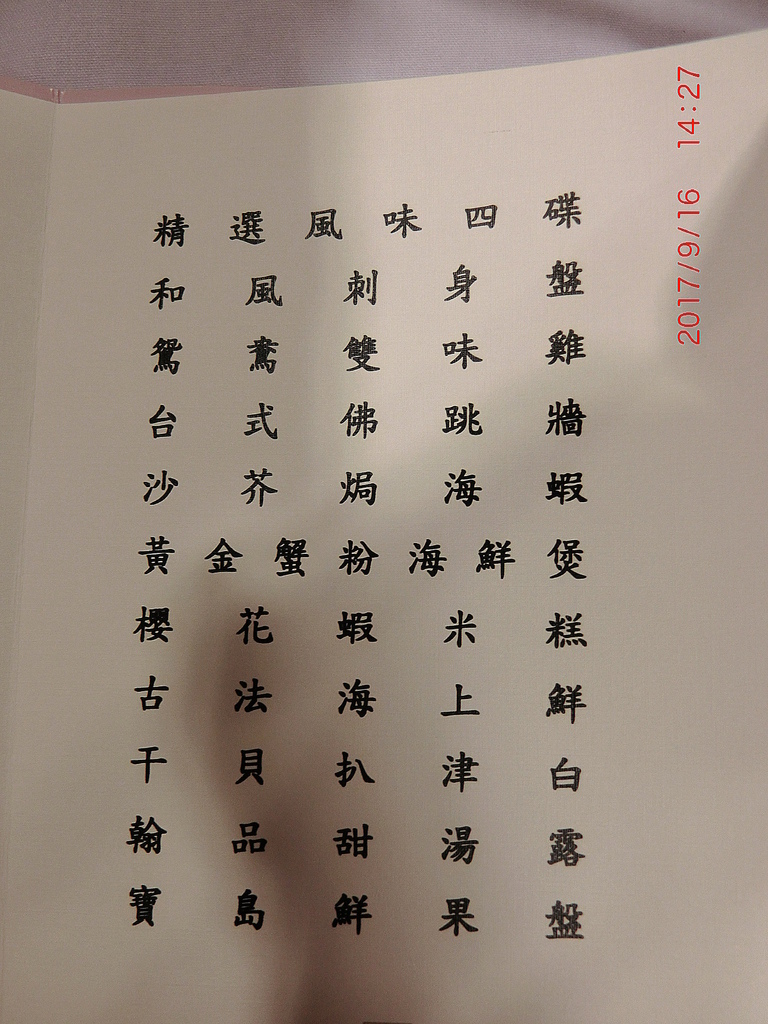 精選風味四碟
和風刺身盤
鴛鴦雙味雞
台式佛跳牆
沙芥焗海蝦
黃金蟹粉海鮮煲
櫻花蝦米糕
古法海上鮮
干貝扒津白
翰品甜湯露
寶島鮮果盤
2017/9/16 14:27